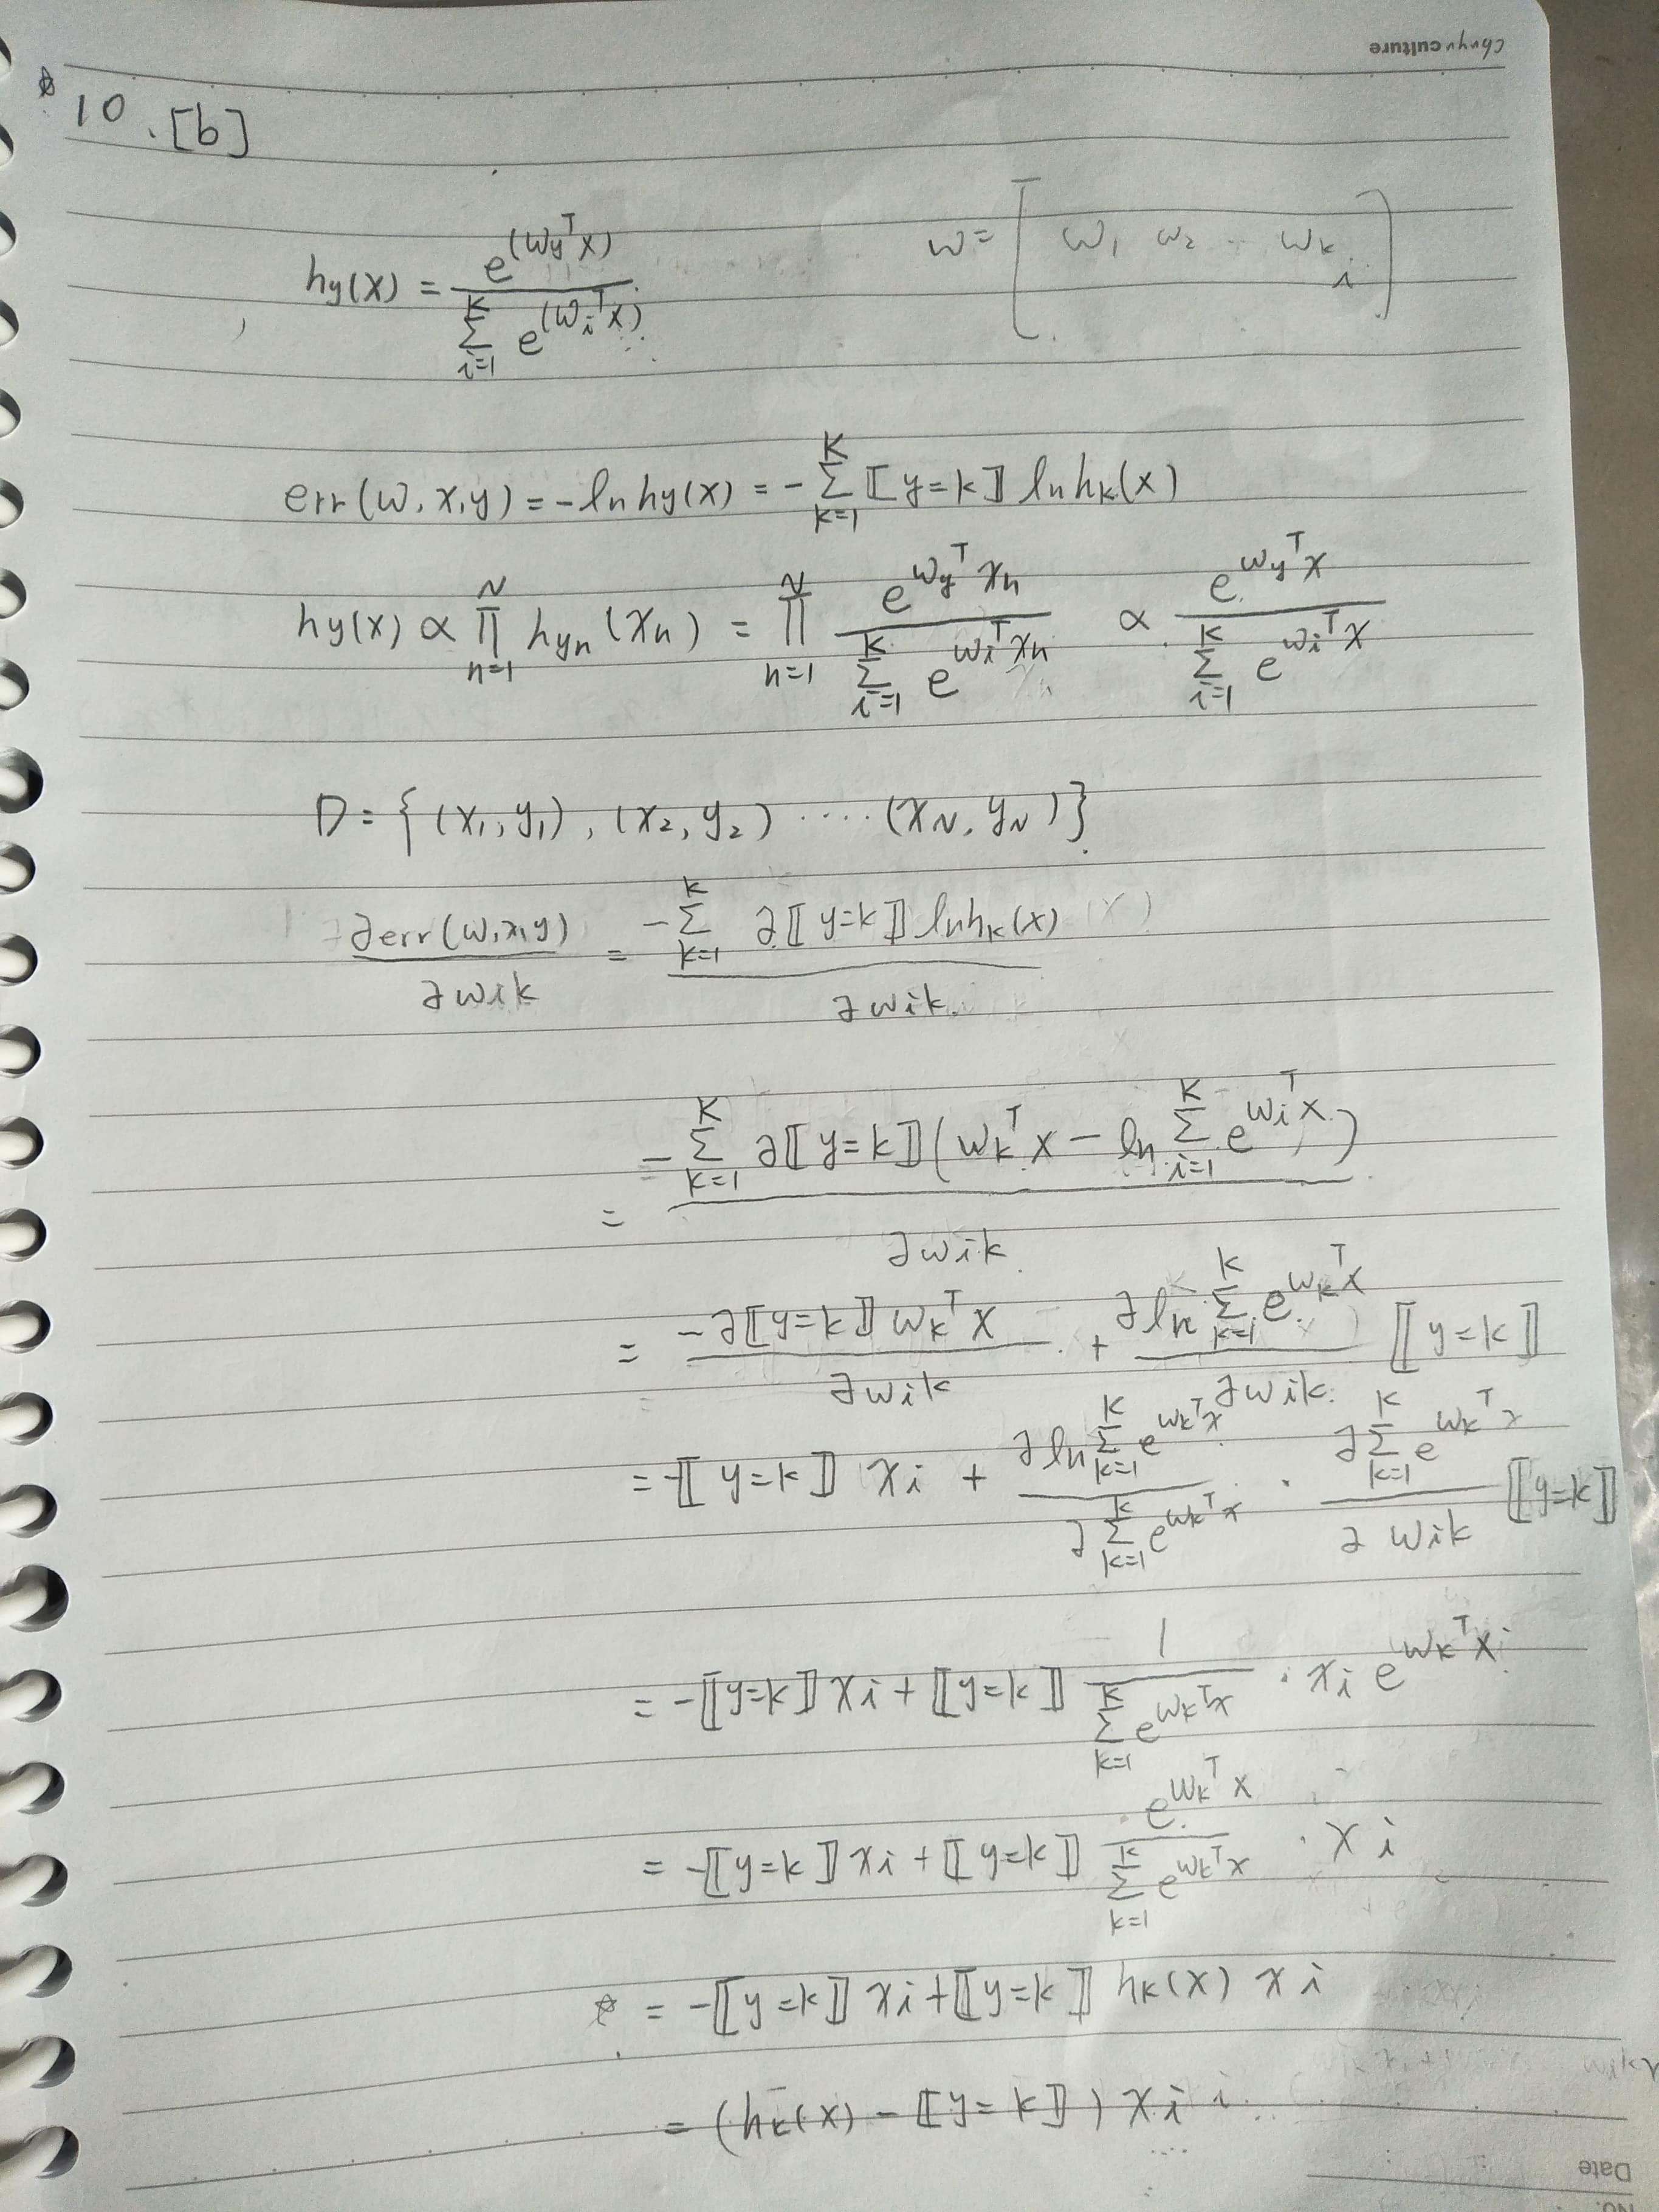 chuyu culture
10. [b]
hy(x) = e^(wy^T x) / Σ_{i=1}^{K} e^(wi^T x)
w = [ w1 w2 ·· wk i ]
err(w, x, y) = -ln hy(x) = -Σ_{k=1}^{K} ⟦y=k⟧ ln hk(x)
hy(x) ∝ Π_{n=1}^{N} hyn(xn) = Π_{n=1}^{N} e^{wy^T xn} / Σ_{i=1}^{K} e^{wi^T xn} ∝ e^{wy^T x} / Σ_{i=1}^{K} e^{wi^T x}
D = {(x1, y1), (x2, y2) ···· (xN, yN)}
∂err(w,x,y) / ∂wik = -Σ_{k=1}^{K} ∂⟦y=k⟧ ln hk(x) / ∂wik
= -Σ_{k=1}^{K} ∂⟦y=k⟧(wk^T x - ln Σ_{i=1}^{K} e^{wi^T x}) / ∂wik
= -∂⟦y=k⟧ wk^T x / ∂wik + ∂ln Σ_{k=1}^{K} e^{wk^T x} / ∂wik ⟦y=k⟧
= -⟦y=k⟧ xi + ∂ln Σ_{k=1}^{K} e^{wk^T x} / ∂Σ_{k=1}^{K} e^{wk^T x} · ∂Σ_{k=1}^{K} e^{wk^T x} / ∂wik ⟦y=k⟧
= -⟦y=k⟧ xi + ⟦y=k⟧ 1 / Σ_{k=1}^{K} e^{wk^T x} · xi e^{wk^T x}
= -⟦y=k⟧ xi + ⟦y=k⟧ e^{wk^T x} / Σ_{k=1}^{K} e^{wk^T x} · xi
= -⟦y=k⟧ xi + ⟦y=k⟧ hk(x) xi
= (hk(x) - ⟦y=k⟧) xi
Date
No.